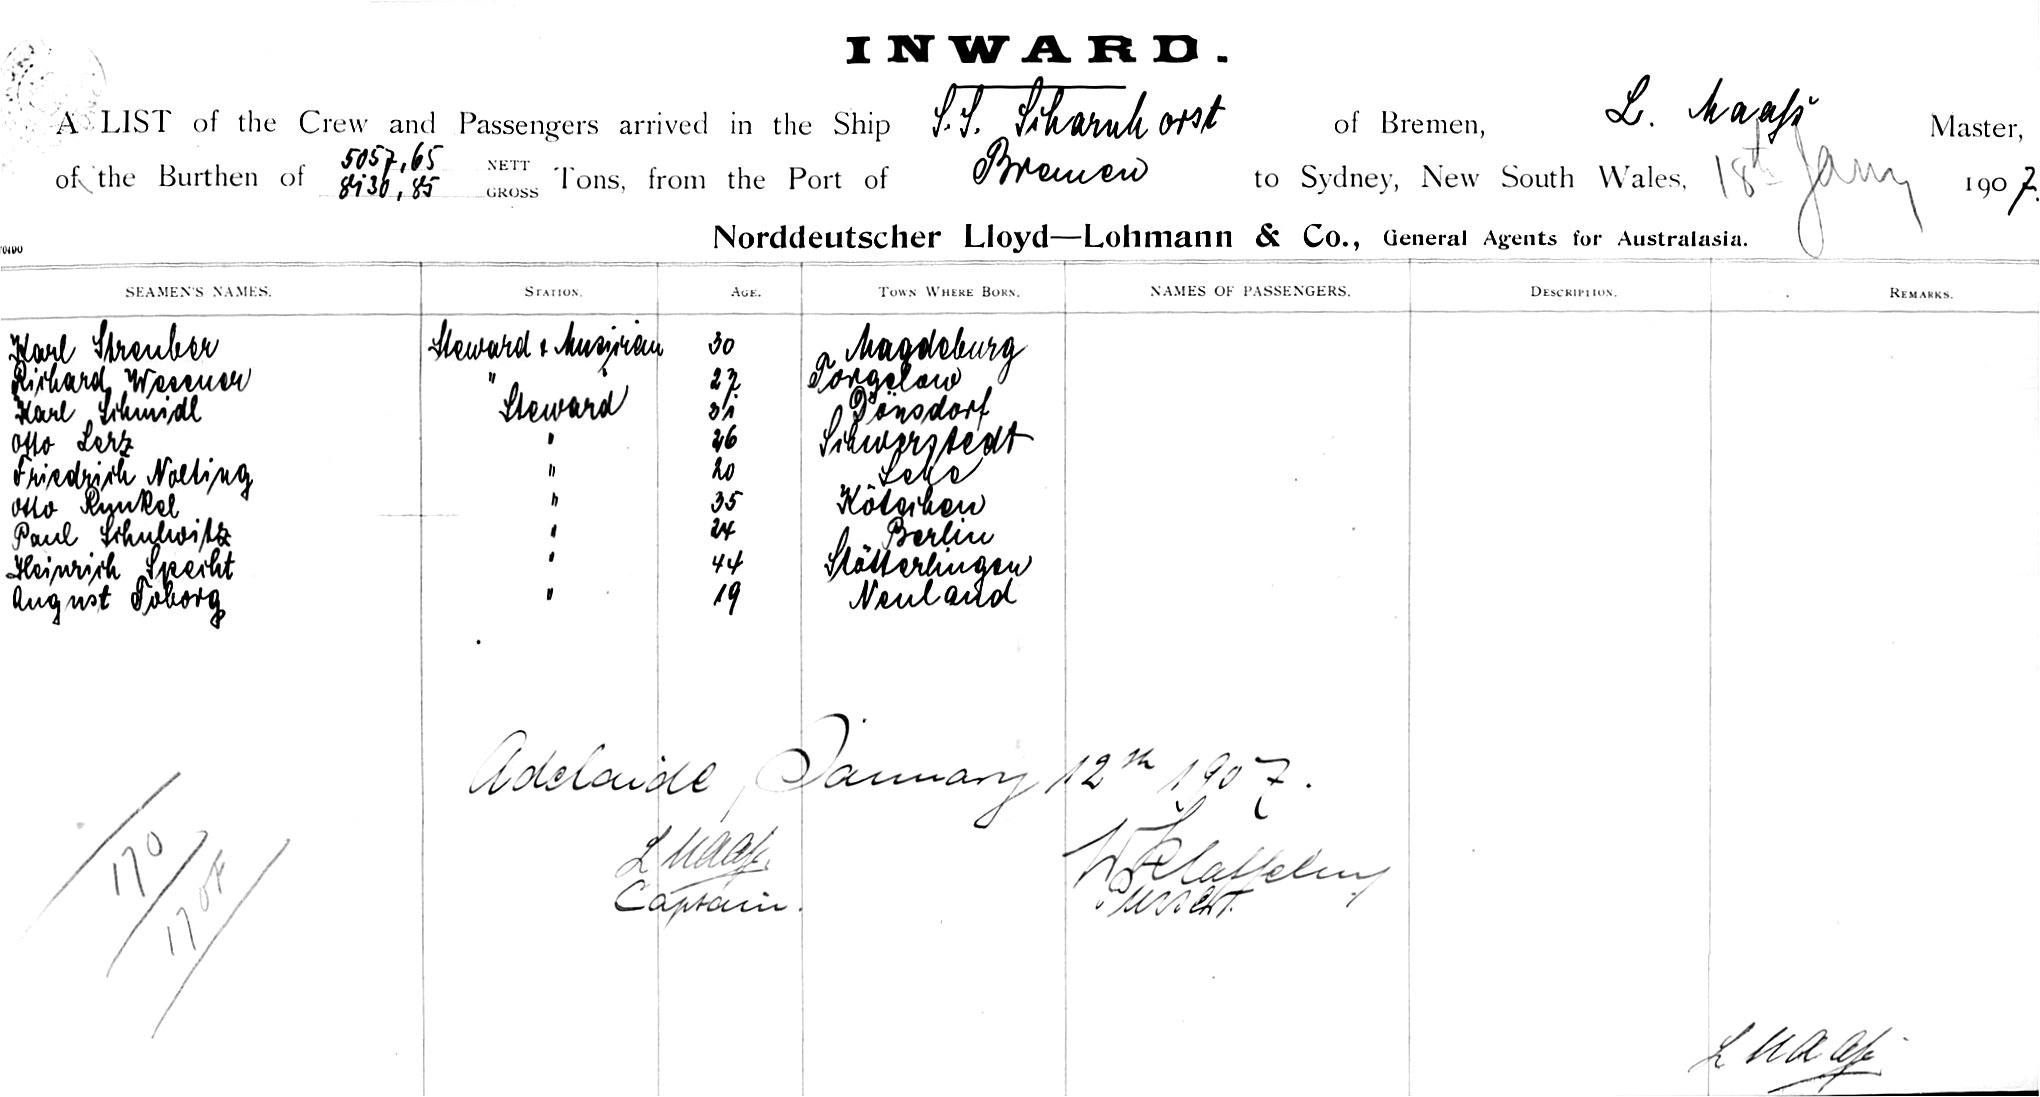 INWARD.
A LIST of the Crew and Passengers arrived in the Ship S.S. Scharnhorst of Bremen, L. Maaß Master,
of the Burthen of 5057,65 NETT 8130,85 GROSS Tons, from the Port of Bremen to Sydney, New South Wales, 18th Jany 1907.
Norddeutscher Lloyd—Lohmann & Co., General Agents for Australasia.
SEAMEN'S NAMES. STATION. AGE. TOWN WHERE BORN. NAMES OF PASSENGERS. DESCRIPTION. REMARKS.
Karl Streuber Steward & Musician 30 Magdeburg
Richard Wesener " " 27 Torgelow
Karl Schmidl Steward 31 Pönsdorf
Otto Lerz " 26 Schwerstedt
Friedrich Nolting " 20 Lehe
Otto Runkel " 35 Kötschen
Paul Schulwitz " 24 Berlin
Heinrich Specht " 44 Stötterlingen
August Toborg " 19 Neuland
Adelaide, January 12th 1907.
L Maaß
Captain.
Purser.
170
170
L Maaß